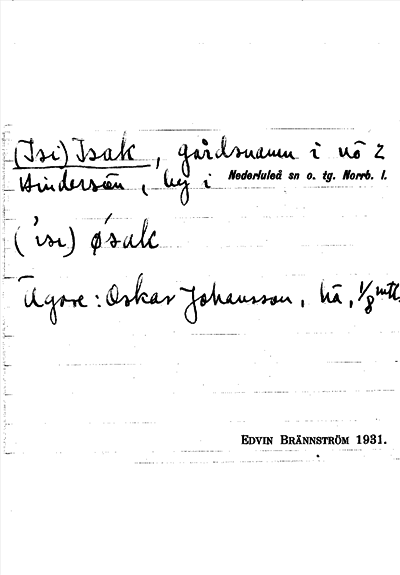 (Isi) Isak, gårdsnamn i nö 2
Hindersön, by i Nederluleå sn o. tg. Norrb. l.
('isi) ǿsak
Ägare: Oskar Johansson, hä, 1/8 mtl.
EDVIN BRÄNNSTRÖM 1931.